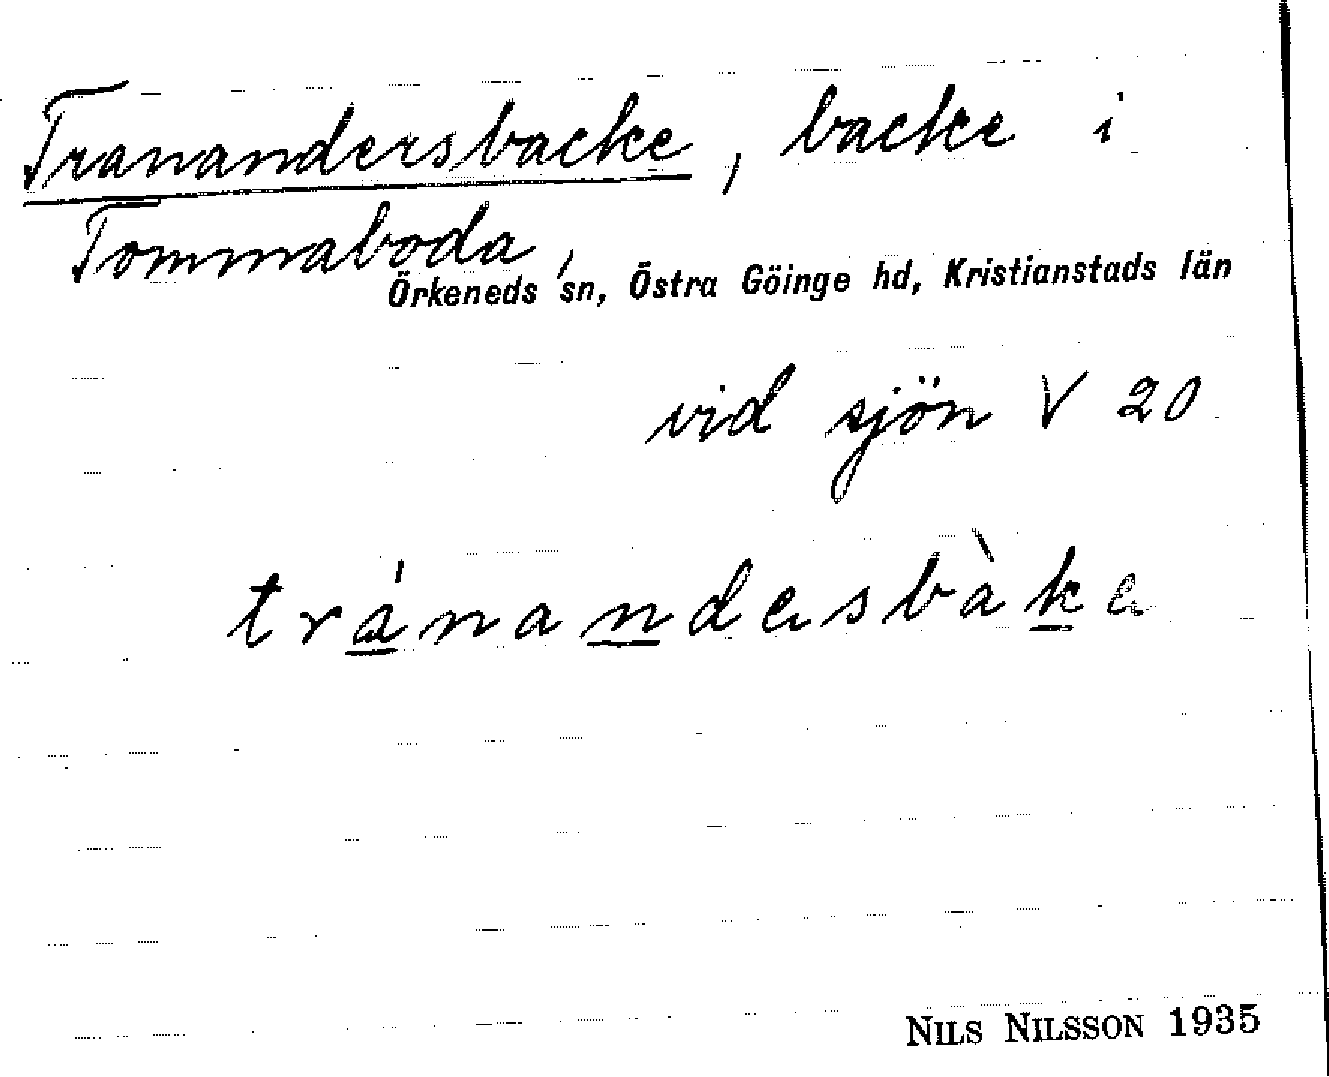 Tranandersbacke, backe i
Tommaboda,
Örkeneds sn, Östra Göinge hd, Kristianstads län
vid sjön V 20
tránandasbàka
NILS NILSSON 1935